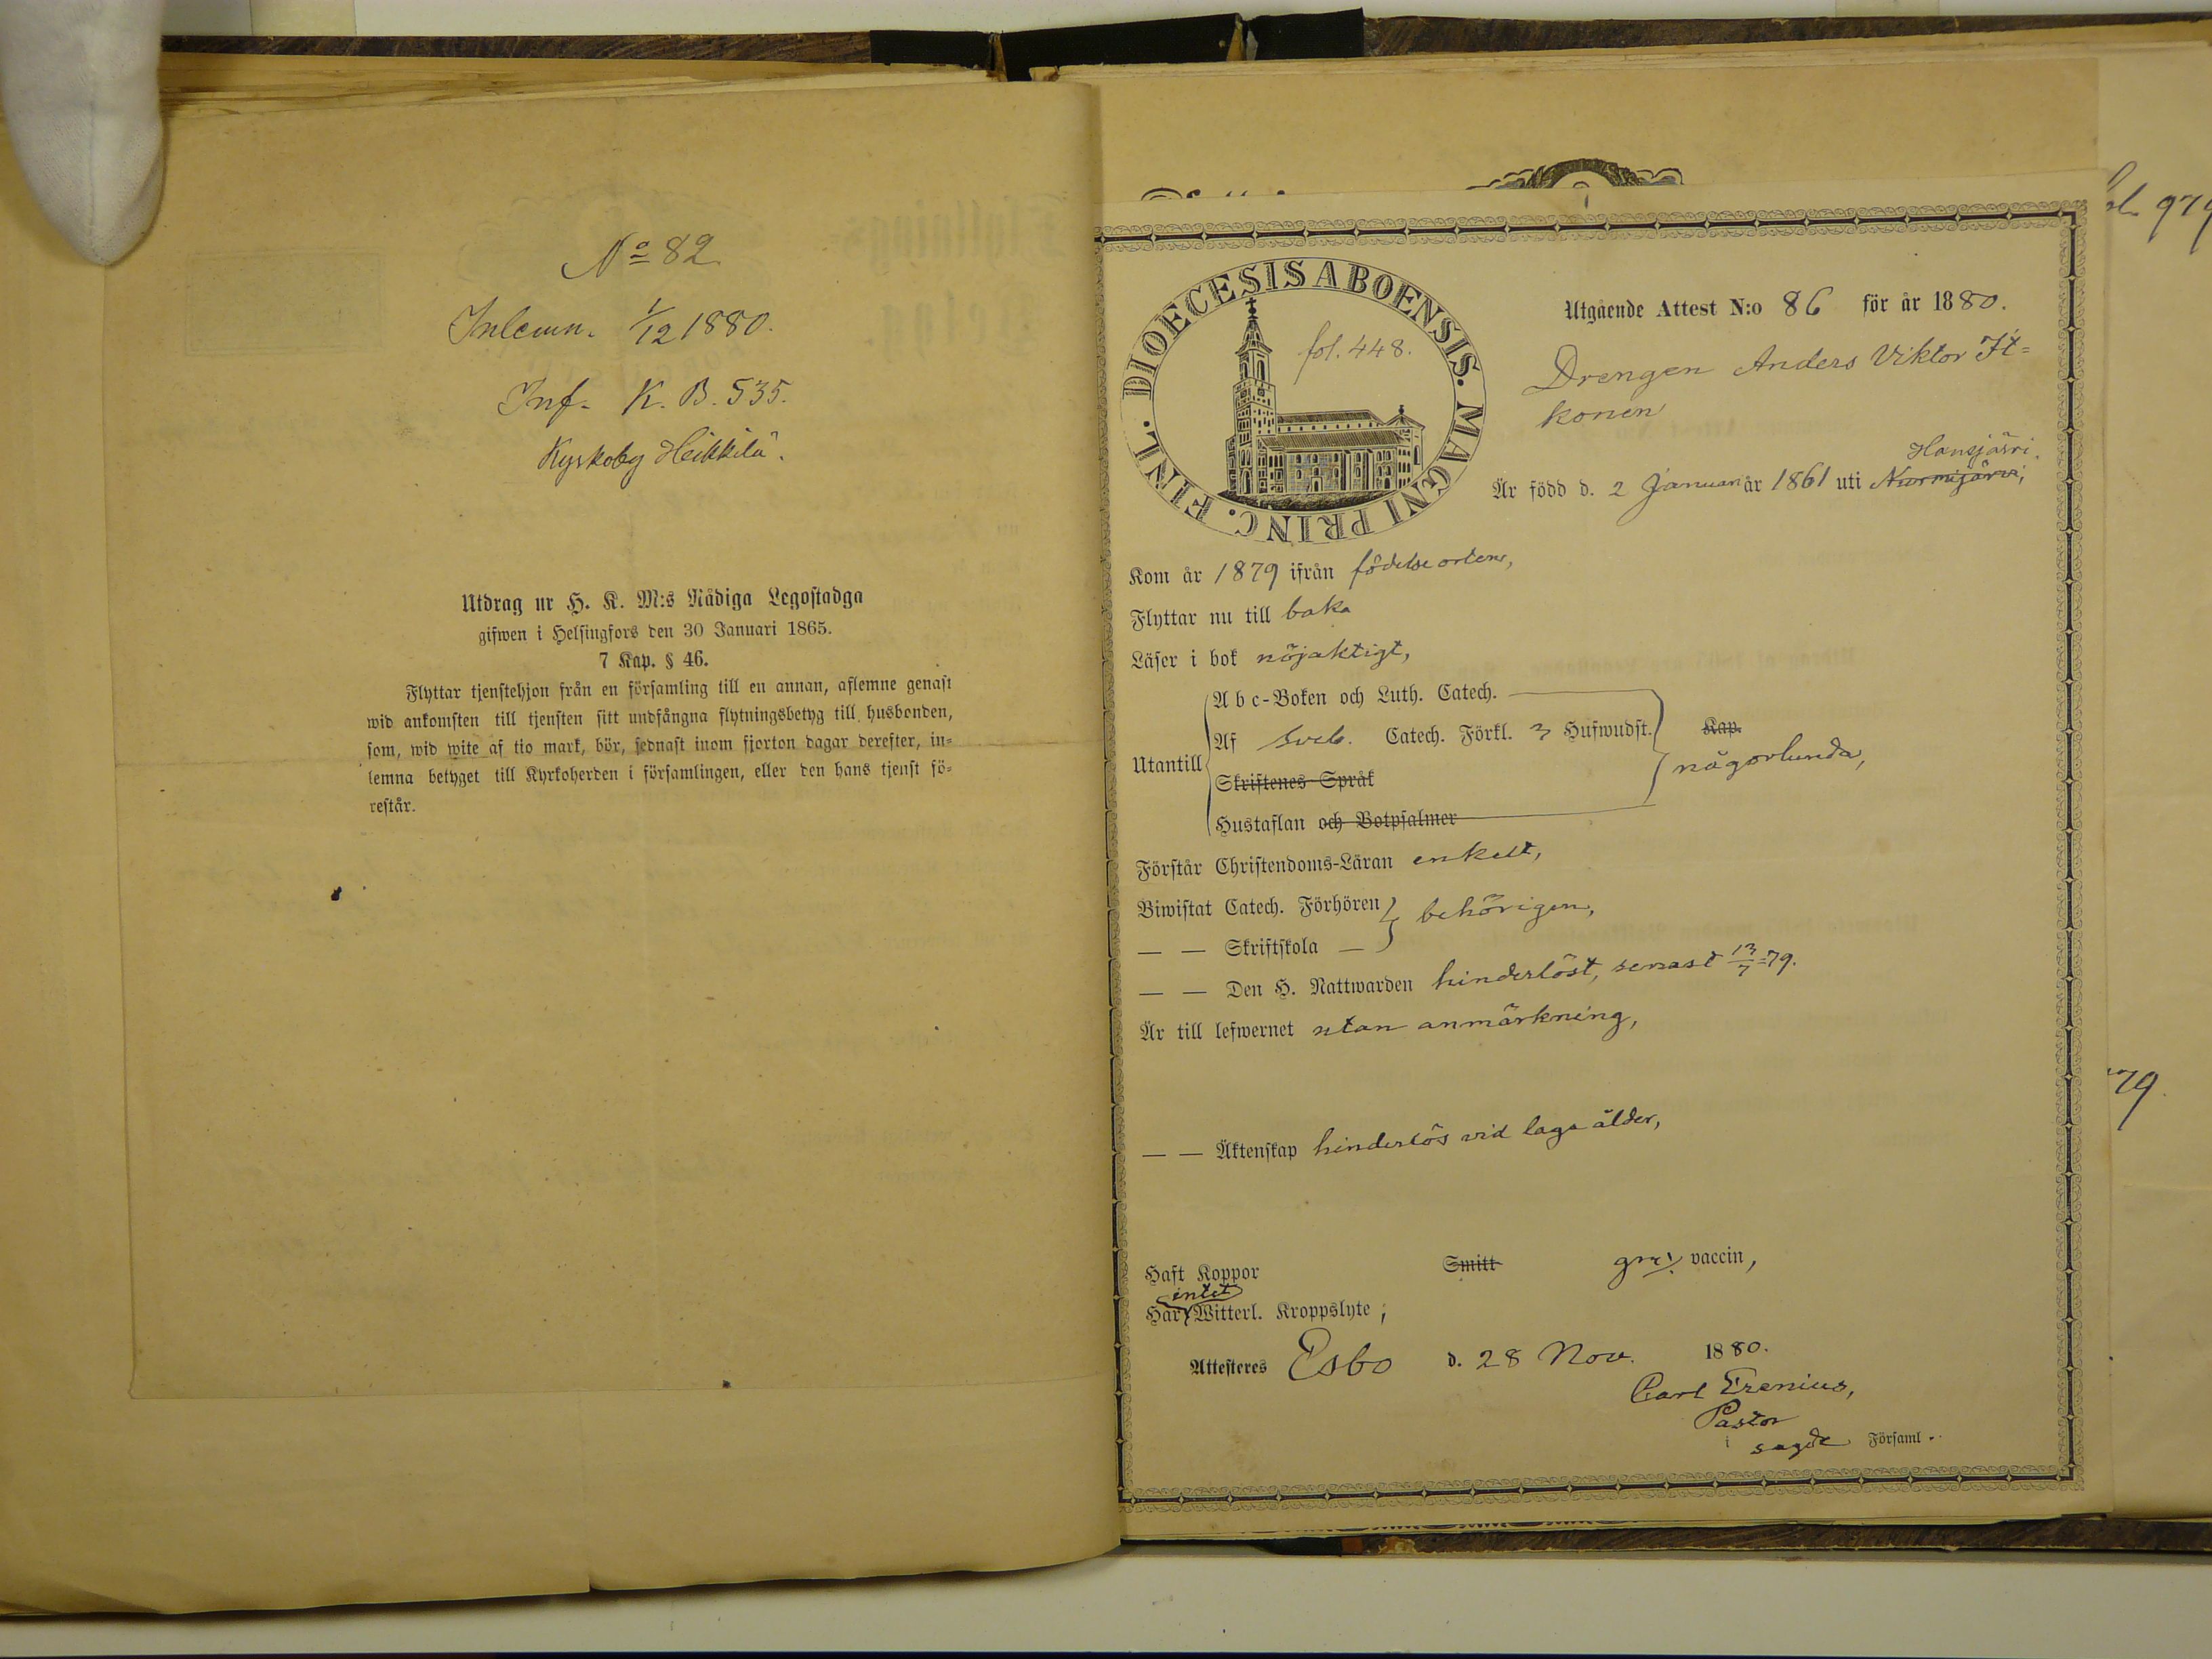 No 82
Inlemn. 1/12 1880.
Inf. K. B. 535.
Kyrkoby Heikkilä.
Utdrag ur H. K. M:s Nådiga Legostadga
gifwen i Helsingfors den 30 Januari 1865.
7 Kap. § 46.
Flyttar tjenstehjon från en församling till en annan, aflemne genast
wid ankomsten till tjensten sitt undfångna flytningsbetyg till husbonden,
som, wid wite af tio mark, bör, sednast inom fjorton dagar derefter, in-
lemna betyget till Kyrkoherden i församlingen, eller den hans tjenst fö-
restår.
979
79
DIOECESIS ABOENSIS. MAGNI PRINC. FINL.
fol. 448.
Utgående Attest N:o 86 för år 1880.
Drengen Anders Viktor It=
konen
Hausjärvi.
Är född d. 2 Januari år 1861 uti Nurmijärvi,
Kom år 1879 ifrån födelseorten,
Flyttar nu till baka
Läser i bok nöjaktigt,
Utantill
A b c-Boken och Luth. Catech.
Af Sveb. Catech. Förkl. 3 Hufwudst. Kap.
Skriftenes Språk
Hustaflan och Botpsalmer
någorlunda,
Förstår Christendoms-Läran enkelt,
Biwistat Catech. Förhören behörigen,
— — Skriftskola —
— — Den H. Nattwarden hinderlöst, senast 13/7 79.
Är till lefwernet utan anmärkning,
— — Äktenskap hinderlös vid laga ålder,
Haft Koppor Smitt vaccin,
intet
Har Witterl. Kroppslyte;
Attesteres Esbo d. 28 Nov. 1880.
Carl Erenius,
Pastor
i sagde Församl.